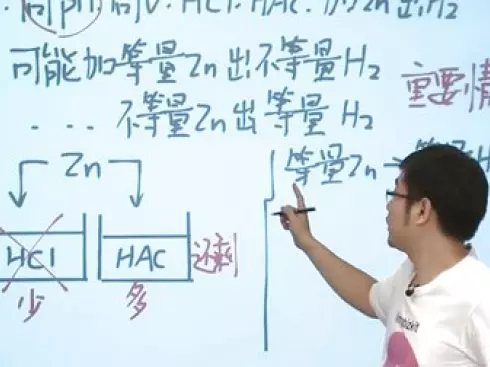 同pH同V.HCl.HAC.加Zn出H₂
可能加等量Zn出不等量H₂
... 不等量Zn出等量 H₂
重要情
等量Zn → 等量H
Zn
HCl
HAC
还剩
少
多